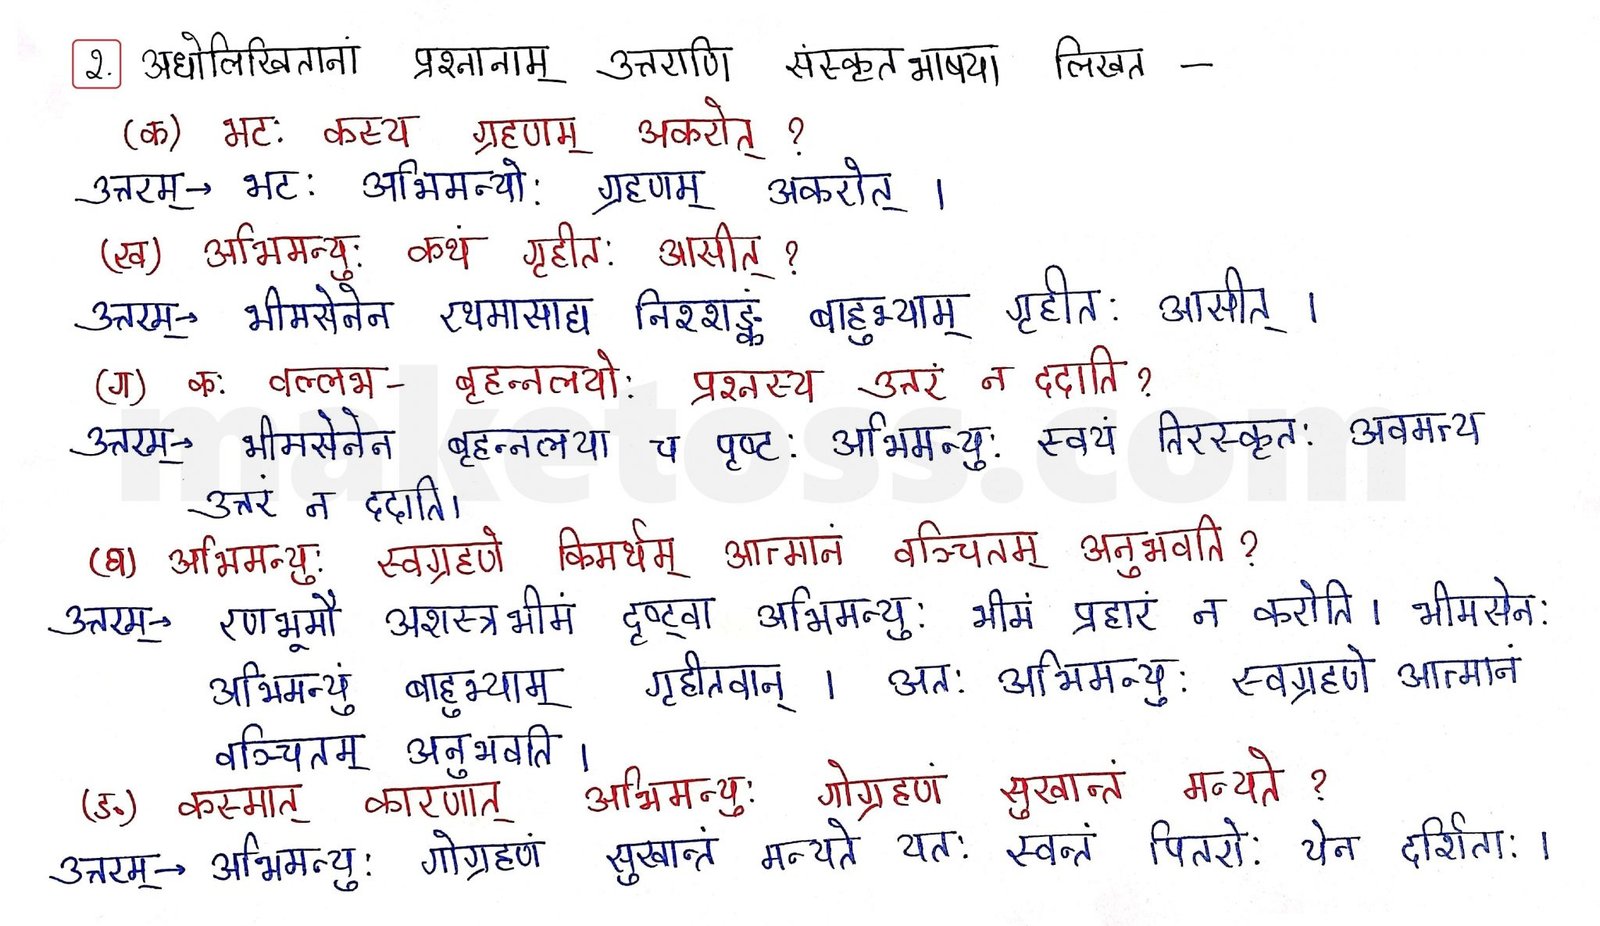 २. अधोलिखितानां प्रश्नानाम् उत्तराणि संस्कृत भाषया लिखत –
(क) भटः कस्य ग्रहणम् अकरोत् ?
उत्तरम् → भटः अभिमन्योः ग्रहणम् अकरोत् ।
(ख) अभिमन्युः कथं गृहीतः आसीत् ?
उत्तरम् → भीमसेनेन रथमासाद्य निश्शङ्कं बाहुभ्याम् गृहीतः आसीत् ।
(ग) कः वल्लभ - बृहन्नलयोः प्रश्नस्य उत्तरं न ददाति ?
उत्तरम् → भीमसेनेन बृहन्नलया च पृष्टः अभिमन्युः स्वयं तिरस्कृतः अवमत्य
उत्तरं न ददाति।
(घ) अभिमन्युः स्वग्रहणे किमर्थम् आत्मानं वञ्चितम् अनुभवति ?
उत्तरम् → रणभूमौ अशस्त्रभीमं दृष्ट्वा अभिमन्युः भीमं प्रहारं न करोति । भीमसेनः
अभिमन्युं बाहुभ्याम् गृहीतवान् । अतः अभिमन्युः स्वग्रहणे आत्मानं
वञ्चितम् अनुभवति ।
(ङ) कस्मात् कारणात् अभिमन्युः गोग्रहणं सुखान्तं मन्यते ?
उत्तरम् → अभिमन्युः गोग्रहणं सुखान्तं मन्यते यतः स्वन्तं पितरोः येन दर्शिताः ।
maketoss.com